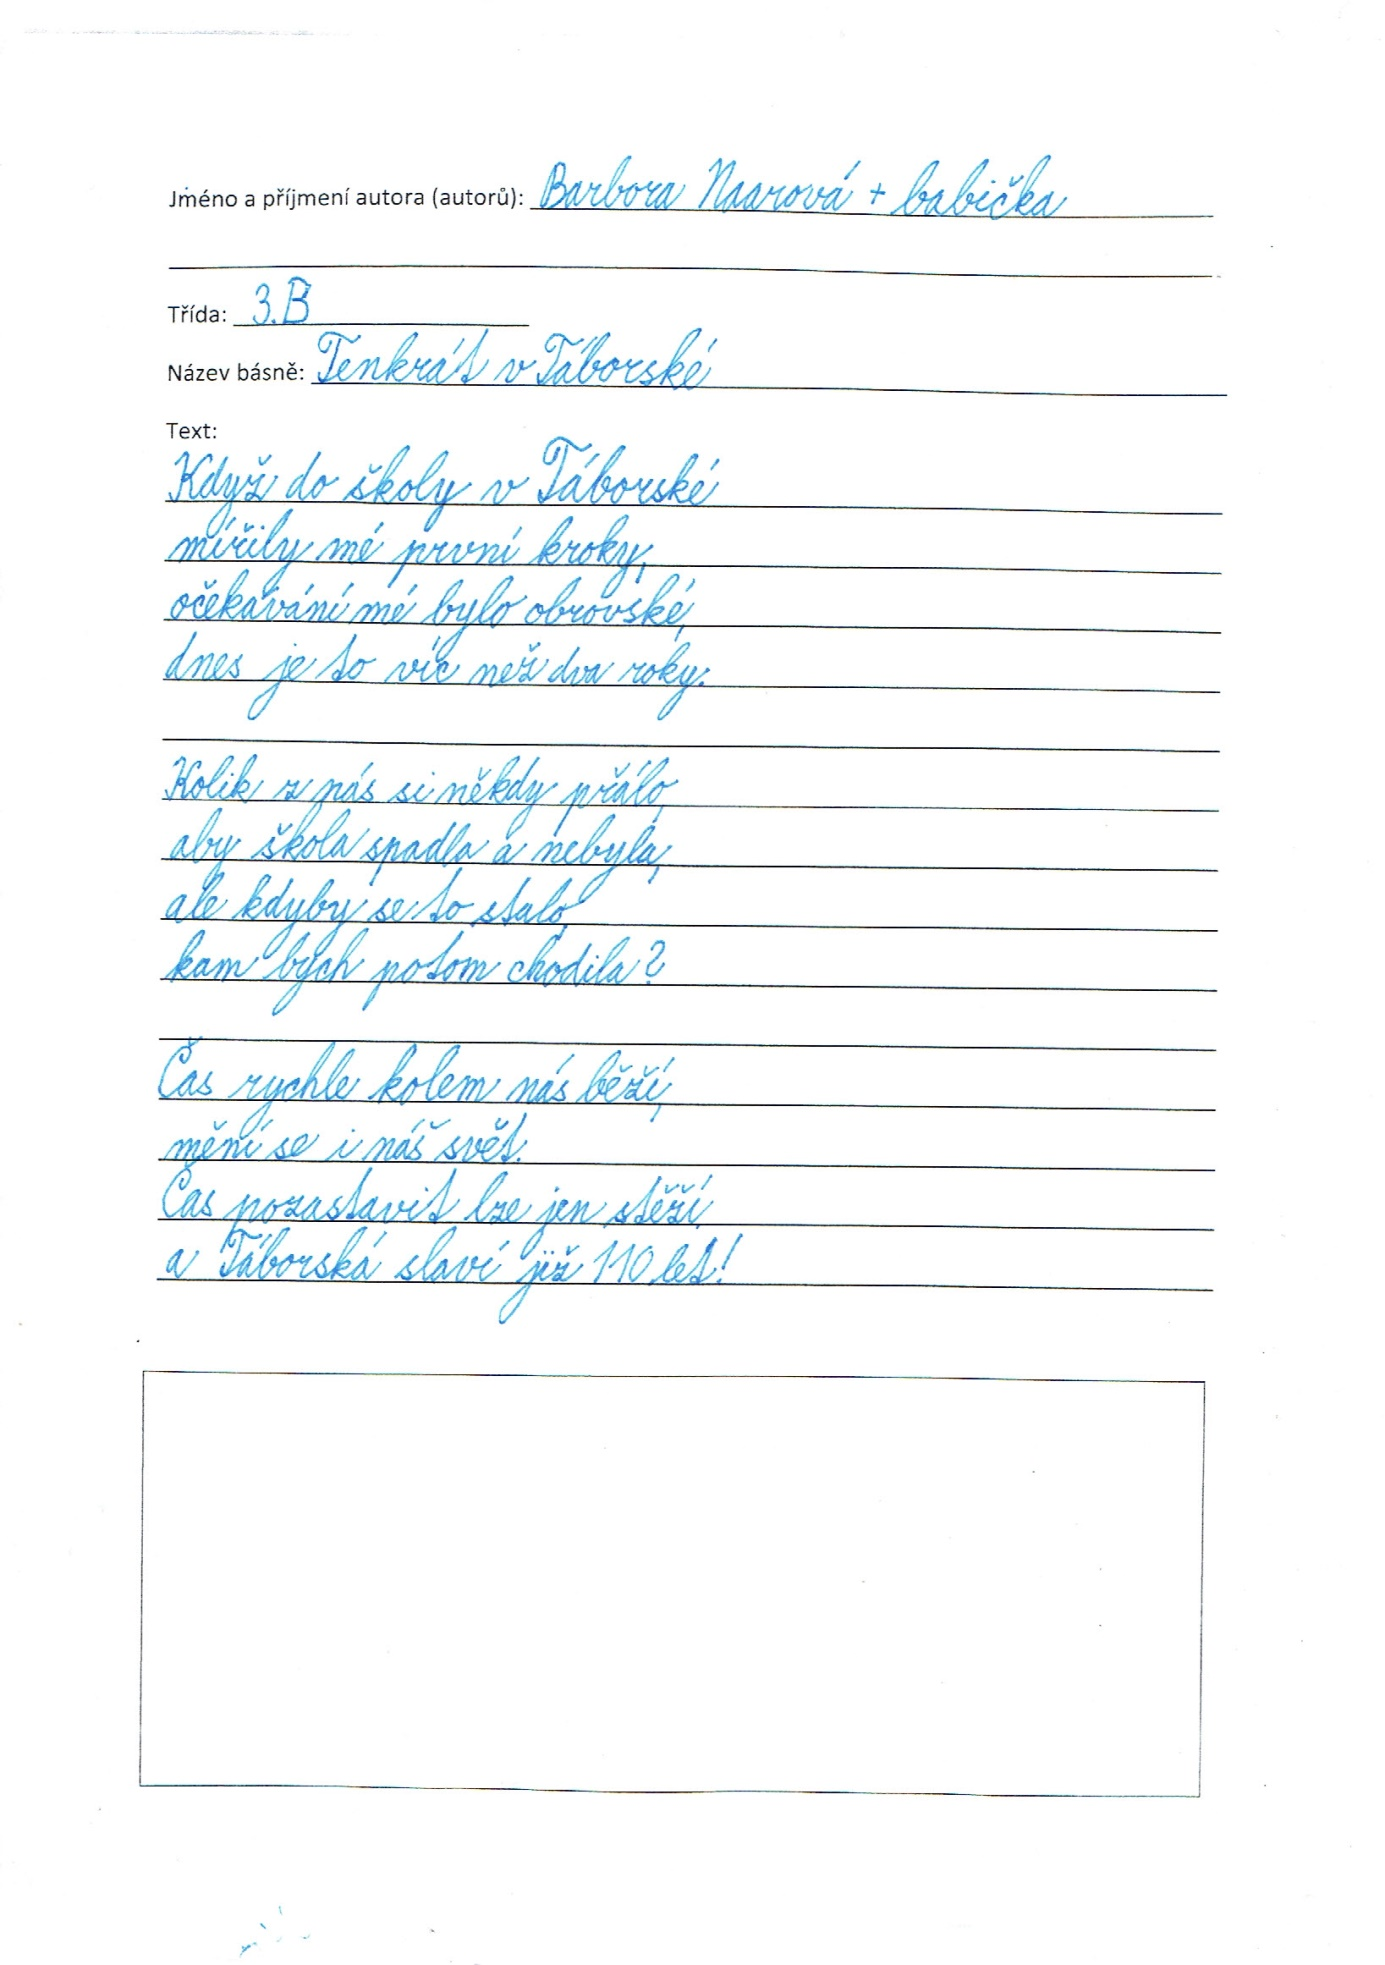 Jméno a příjmení autora (autorů): Barbora Naarová + babička
Třída: 3.B
Název básně: Tenkrát v Táborské
Text:
Když do školy v Táborské
mířily mé první kroky,
očekávání mé bylo obrovské,
dnes je to víc než dva roky.
Kolik z nás si někdy přálo,
aby škola spadla a nebyla,
ale kdyby se to stalo,
kam bych potom chodila?
Čas rychle kolem nás běží,
mění se i náš svět.
Čas pozastavit lze jen stěží
a Táborská slaví již 110 let!